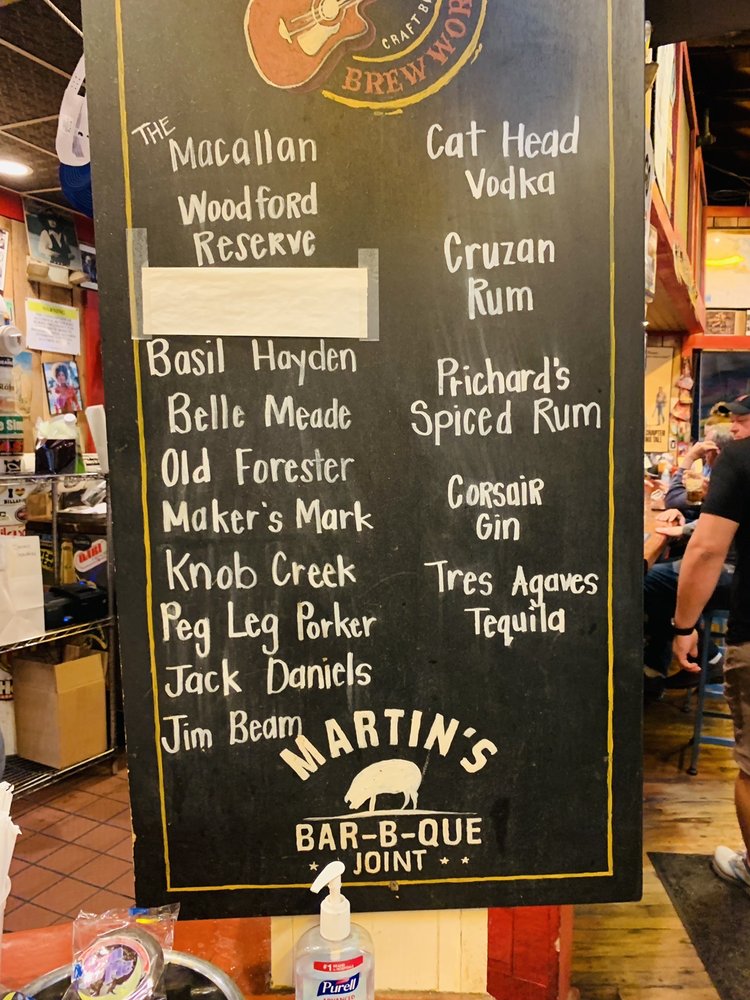 CRAFT
BREW WOR
THE
Macallan
Woodford
Reserve
Basil Hayden
Belle Meade
Old Forester
Maker's Mark
Knob Creek
Peg Leg Porker
Jack Daniels
Jim Beam
Cat Head
Vodka
Cruzan
Rum
Prichard's
Spiced Rum
Corsair
Gin
Tres Agaves
Tequila
MARTIN'S
BAR-B-QUE
JOINT
#1
Purell
ADVANCED